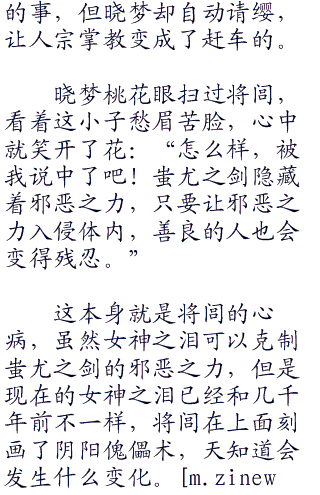 的事，但晓梦却自动请缨，
让人宗掌教变成了赶车的。
晓梦桃花眼扫过将闾，
看着这小子愁眉苦脸，心中
就笑开了花：“怎么样，被
我说中了吧！蚩尤之剑隐藏
着邪恶之力，只要让邪恶之
力入侵体内，善良的人也会
变得残忍。”
这本身就是将闾的心
病，虽然女神之泪可以克制
蚩尤之剑的邪恶之力，但是
现在的女神之泪已经和几千
年前不一样，将闾在上面刻
画了阴阳傀儡术，天知道会
发生什么变化。[m.zinew